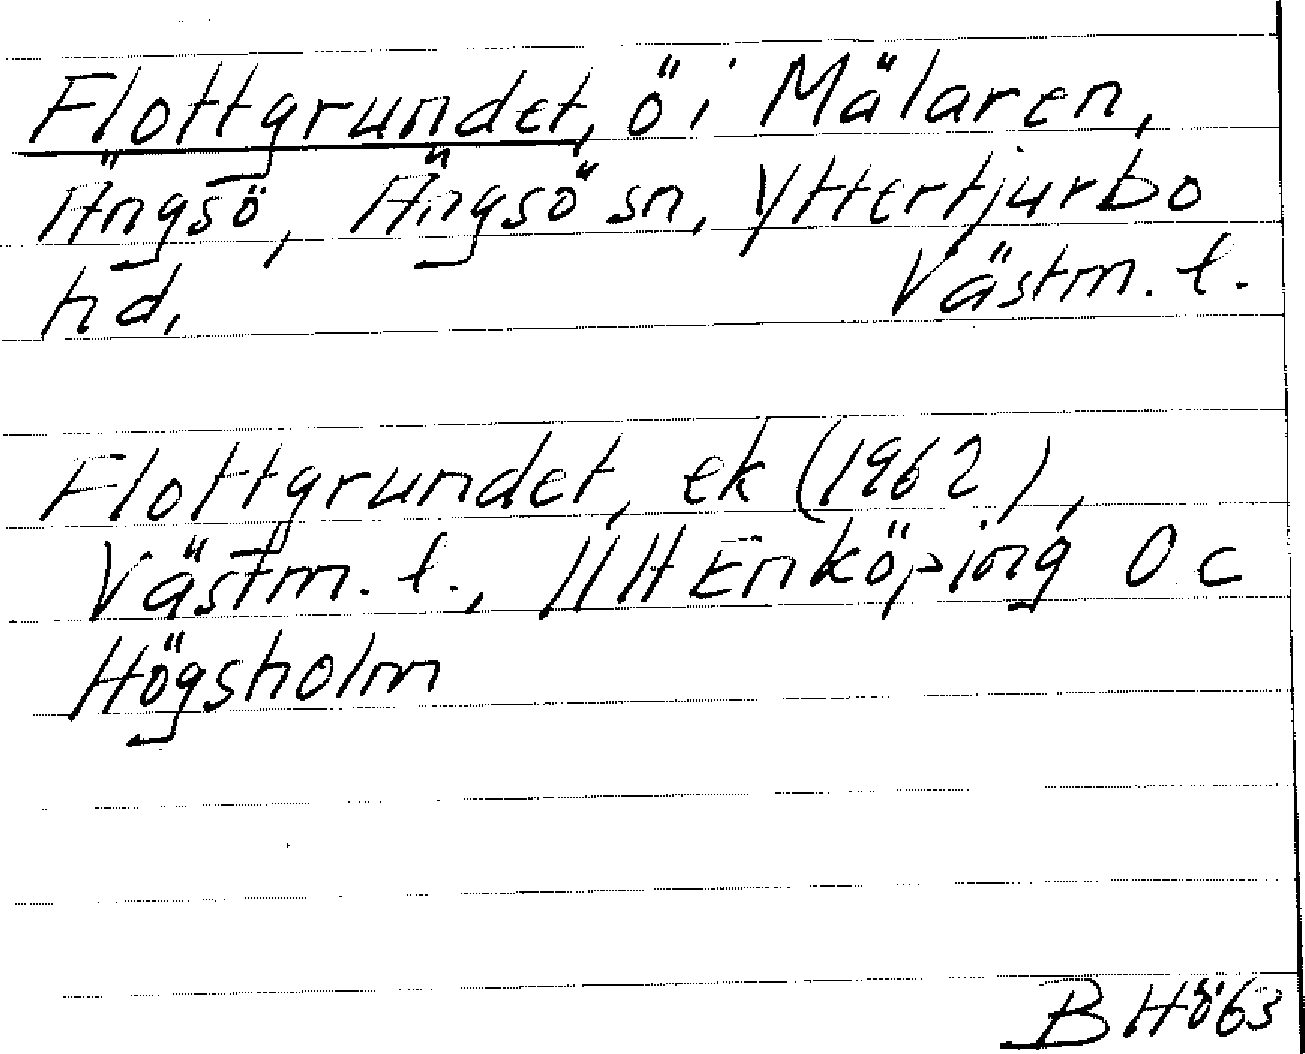 Flottgrundet, ö i Mälaren,
Ängsö, Ängsö sn, Yttertjurbo
hd, Västm. l.
Flottgrundet, ek (1962),
Västm. l., 11 H Enköping 0 c
Högsholm
B Hö 63